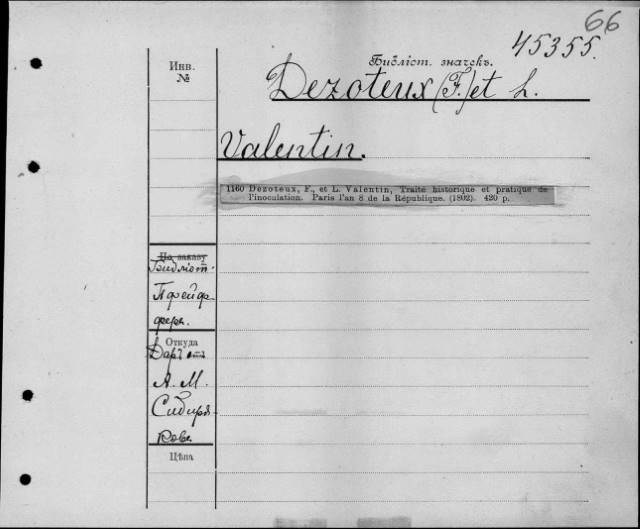 66
45355.
Инв.
№
Библіот. значекъ.
Dezoteux (F.) et L.
Valentin.
1160 Dezoteux, F., et L. Valentin, Traité historique et pratique de
l'inoculation. Paris l'an 8 de la République. (1802). 420 p.
По заказу
Библіот.
Пфейф-
фера.
Откуда
Даръ отъ
А. М.
Сибиря-
кова.
Цѣна